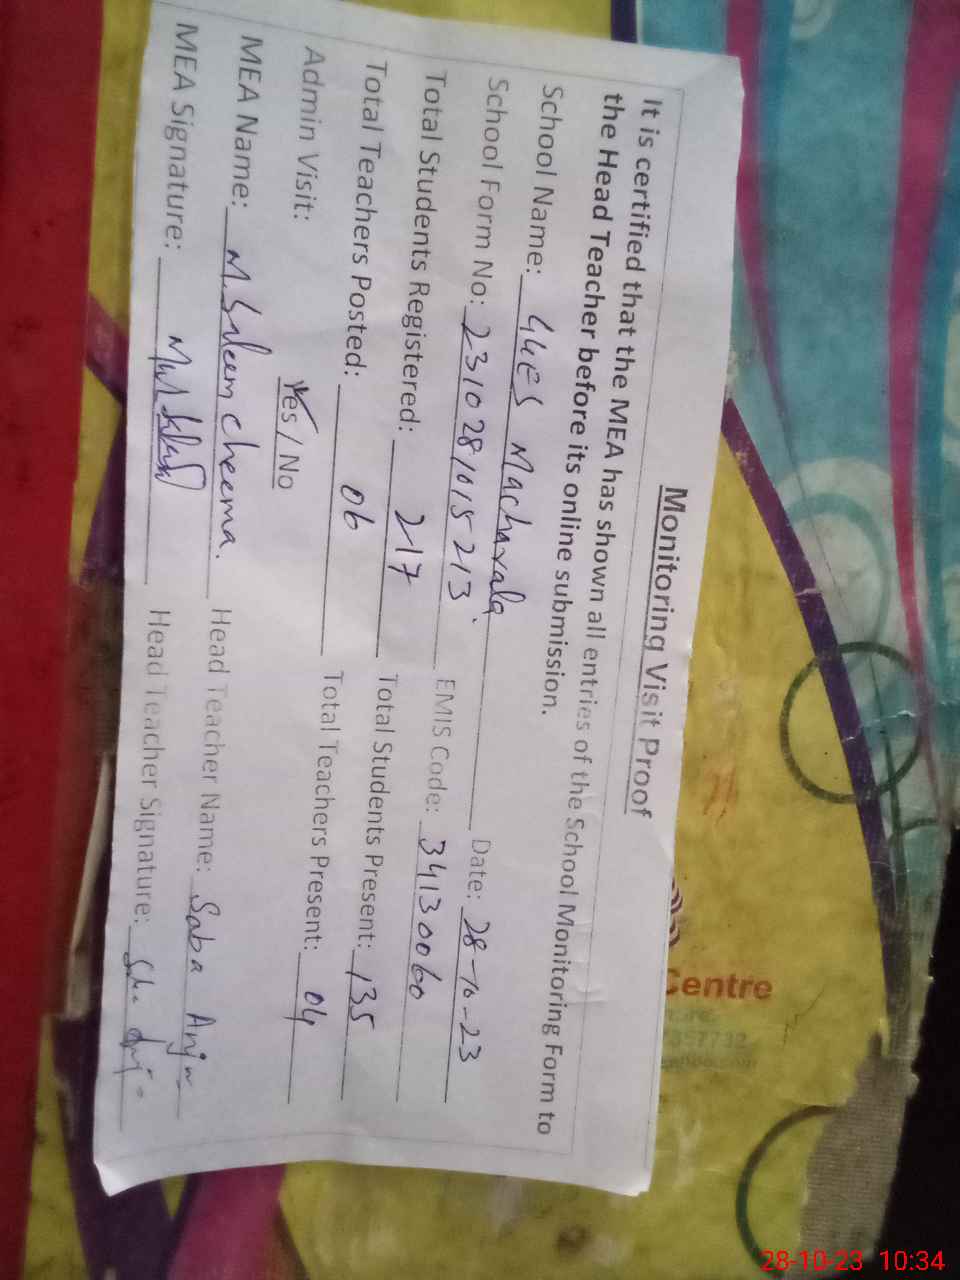 Monitoring Visit Proof
It is certified that the MEA has shown all entries of the School Monitoring Form to
the Head Teacher before its online submission.
School Name: GGES Machavala. Date: 28-10-23
School Form No: 2310281015213 EMIS Code: 34130060
Total Students Registered: 217 Total Students Present: 135
Total Teachers Posted: 06 Total Teachers Present: 04
Admin Visit: Yes / No
MEA Name: M. Saleem Cheema. Head Teacher Name: Saba Anjum
MEA Signature: Head Teacher Signature:
Centre
357732
28-10-23 10:34